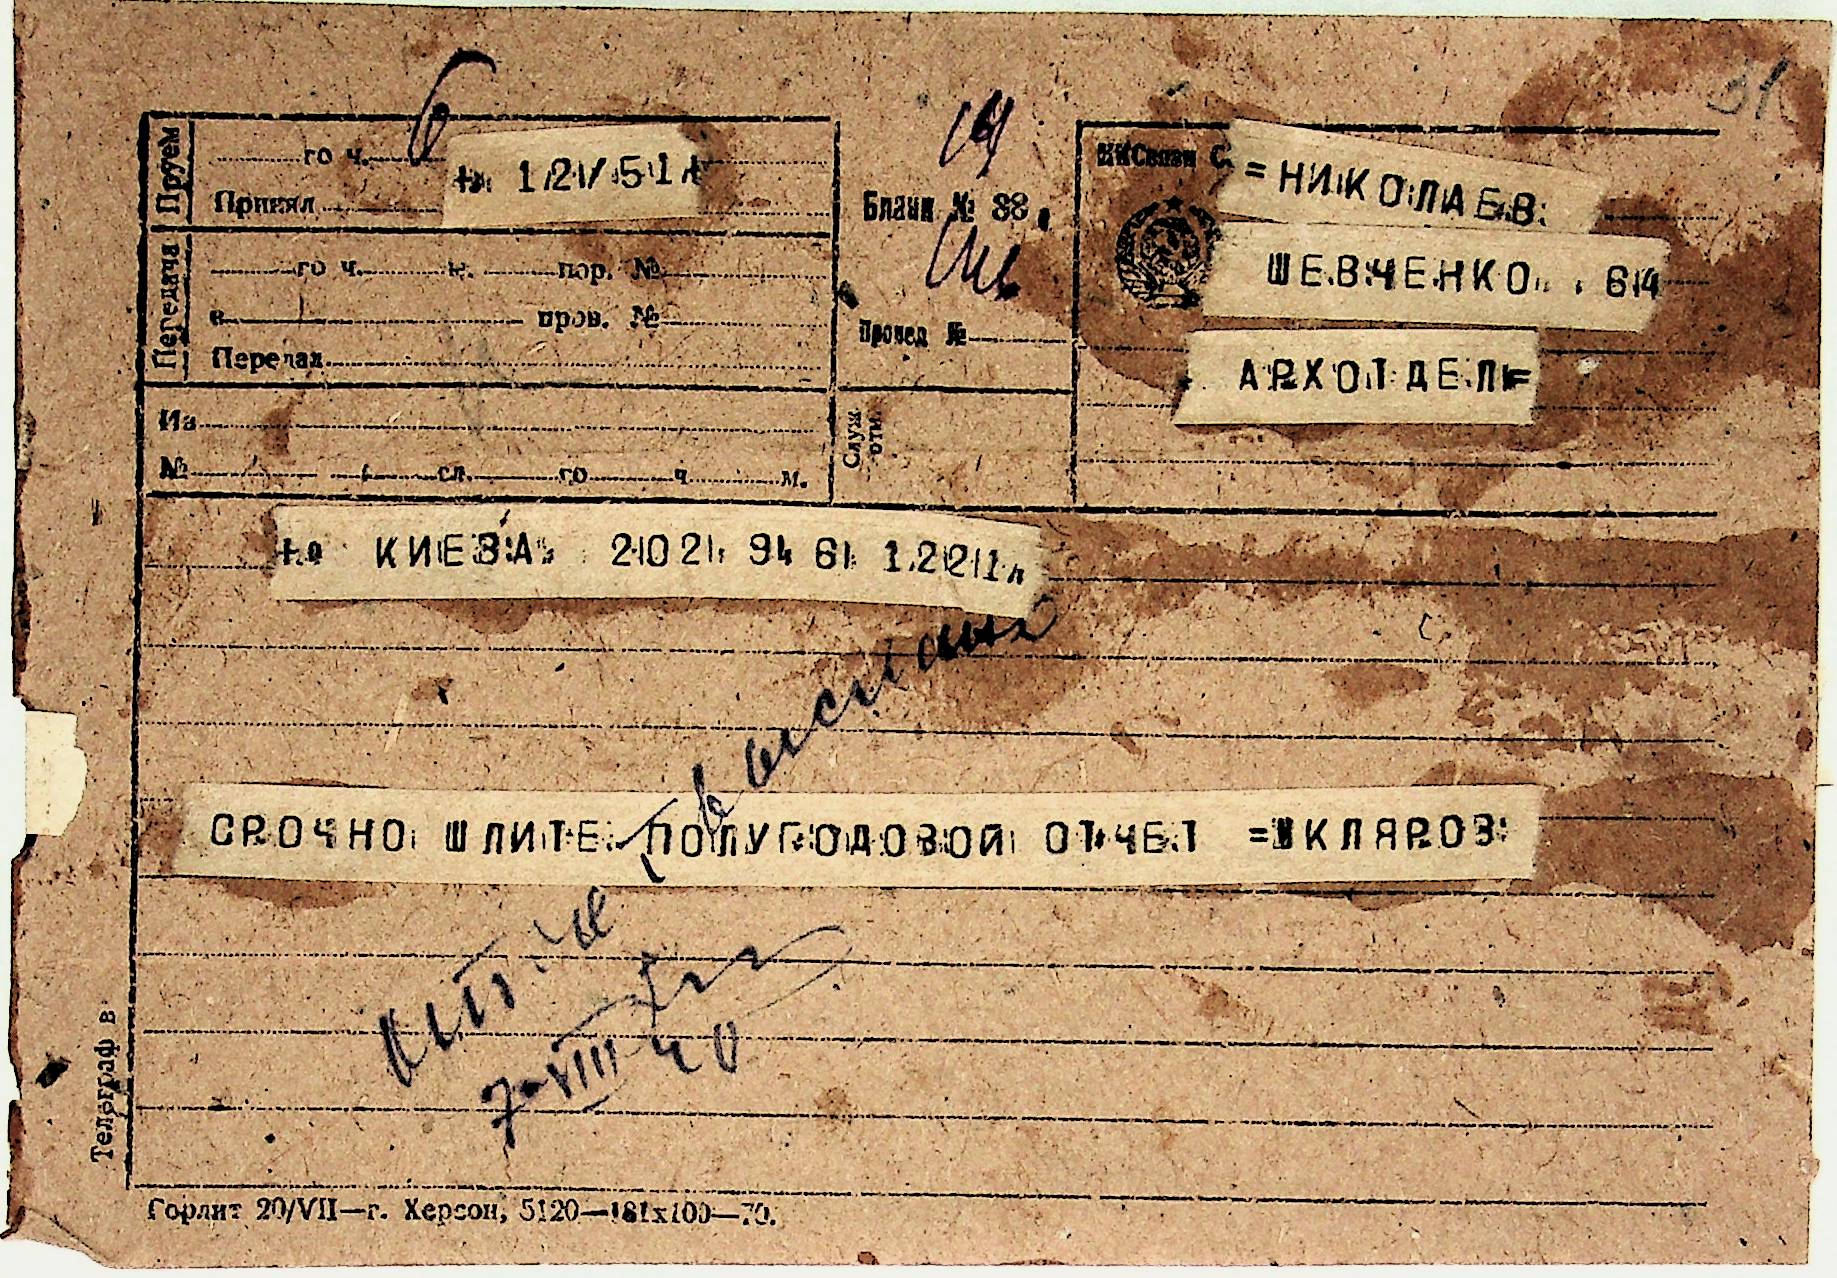 31
6
Прием
го ч.
+ 12/51 +
Принял
Передача
го ч. м. пор. №
в пров. №
Передал
Из
№ сл. го ч. м.
Бланк № 38
Провед №
Служ. отм.
НКСвязи С
=НИКОЛАЕВ
ШЕВЧЕНКО 64
АРХОТДЕЛ=
КИЕВА 202 9 6 1221
СРОЧНО ШЛИТЕ ПОЛУГОДОВОЙ ОТЧЕТ =ШКЛЯРОВ
7-VIII 40
Телеграф В
Горлит 20/VII—г. Херсон, 5120—181х100—70.